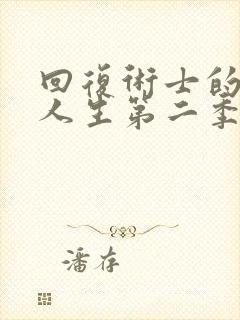 回復術士的
人生第二季
潘存